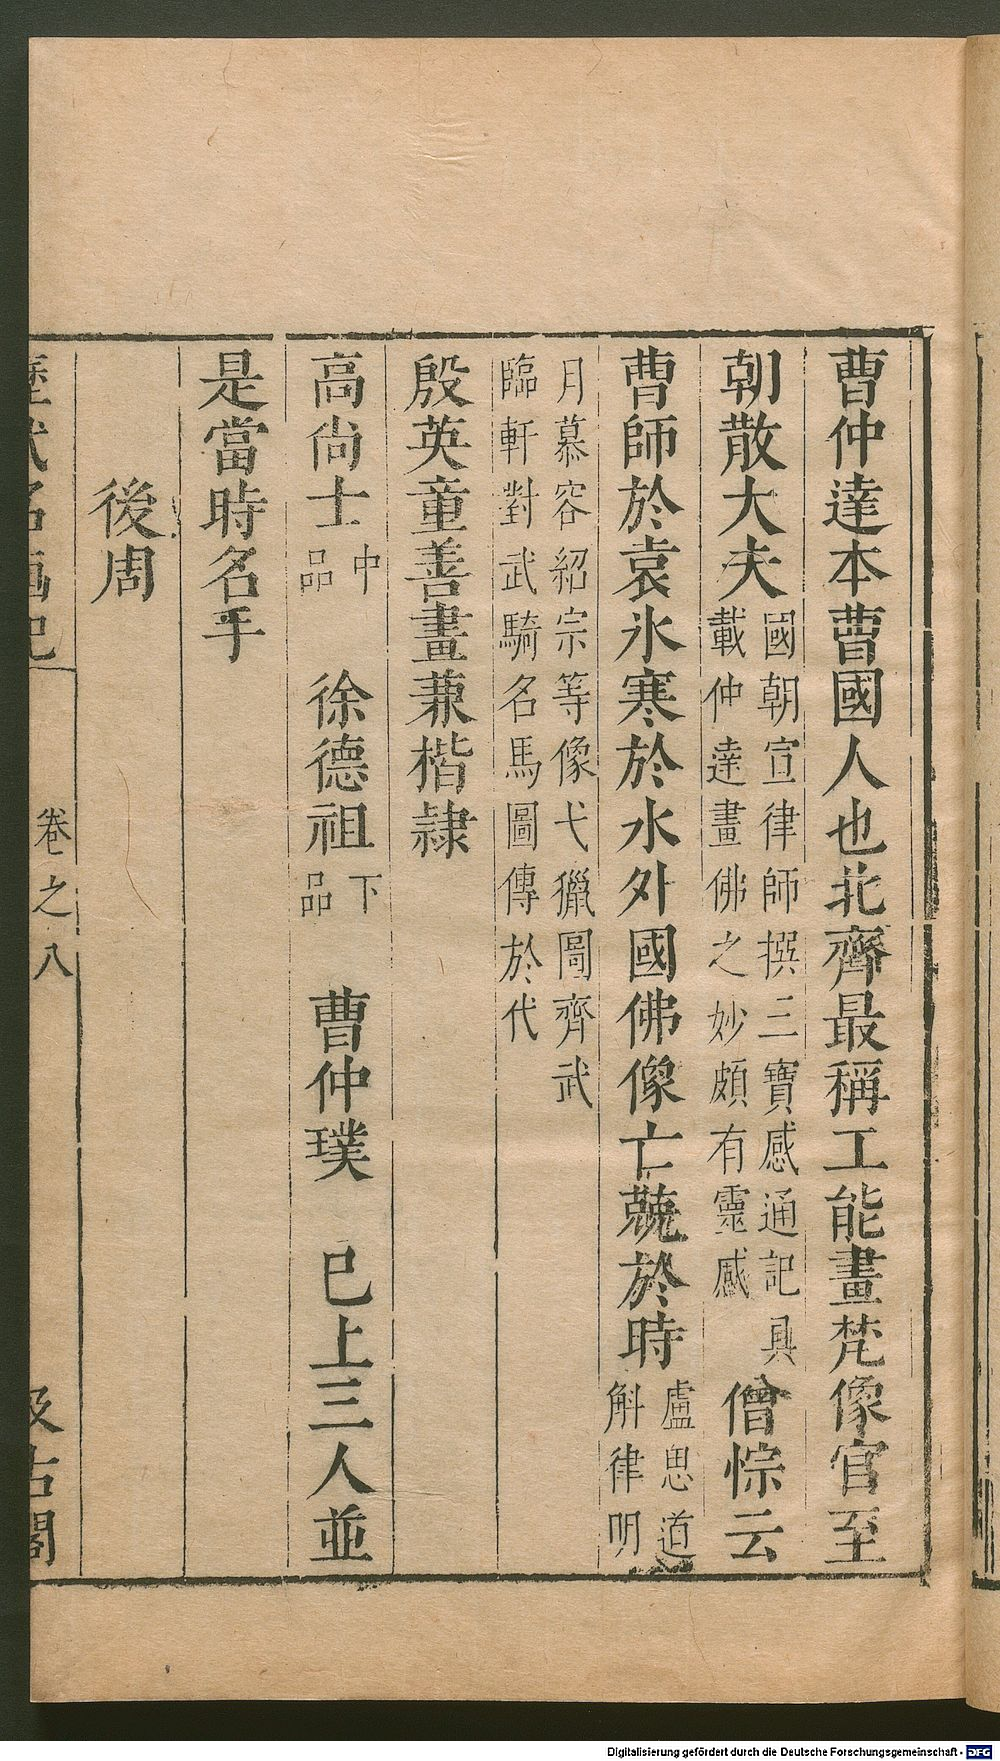 曹仲達本曹國人也北齊最稱工能畫梵像官至
朝散大夫國朝宣律師撰三寶感通記具
載仲達畫佛之妙頗有靈感僧悰云
曹師於袁氷寒於水外國佛像亡兢於時盧思道
斛律明
月慕容紹宗等像弋獵圖齊武
臨軒對武騎名馬圖傳於代
殷英童善畫兼楷隷
高尚士中品 徐德祖下品 曹仲璞 已上三人並
是當時名手
後周
歷代名畫記 卷之八 汲古閣
Digitalisierung gefördert durch die Deutsche Forschungsgemeinschaft - DFG